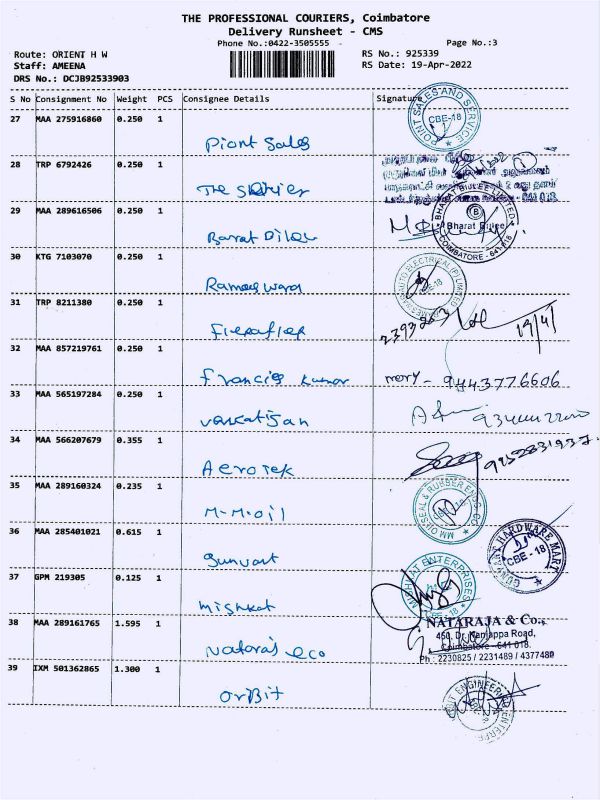 THE PROFESSIONAL COURIERS, Coimbatore
Delivery Runsheet - CMS
Phone No.:0422-3505555 Page No.:3
Route: ORIENT H W RS No.: 925339
Staff: AMEENA RS Date: 19-Apr-2022
DRS No.: DCJB92533903
S No Consignment No Weight PCS Consignee Details Signature
27 MAA 275916860 0.250 1
Piont Sales
POINT SALES AND SERVICE
CBE-18
28 TRP 6792426 0.250 1
The
29 MAA 289616506 0.250 1
Barat
BHARAT BIJLEE LIMITED
Bharat Bijlee
COIMBATORE - 641 018
30 KTG 7103070 0.250 1
Rameswara
AUTO ELECTRICAL (P) LIMITED
31 TRP 8211380 0.250 1
19/4/
32 MAA 857219761 0.250 1
Francies Kumar mery - 9443776606
33 MAA 565197284 0.250 1
Venkatisan
34 MAA 566207679 0.355 1
Aerotek 9952831937
35 MAA 289160324 0.235 1
M-M-oil
MM OILSEAL & RUBBER ENGG CO
36 MAA 285401021 0.615 1
Gunvant
GUNVANT HARDWARE MART
CBE - 18
37 GPM 219305 0.125 1
Mishkat
MISHKAT ENTERPRISES
CBE-18
38 MAA 289161765 1.595 1
Nataraj eco
NATARAJA & Co.,
450, Dr. Nanjappa Road,
Coimbatore - 641 018.
Ph : 2230825 / 2231489 / 4377489
39 IXM 501362865 1.300 1
Orbit